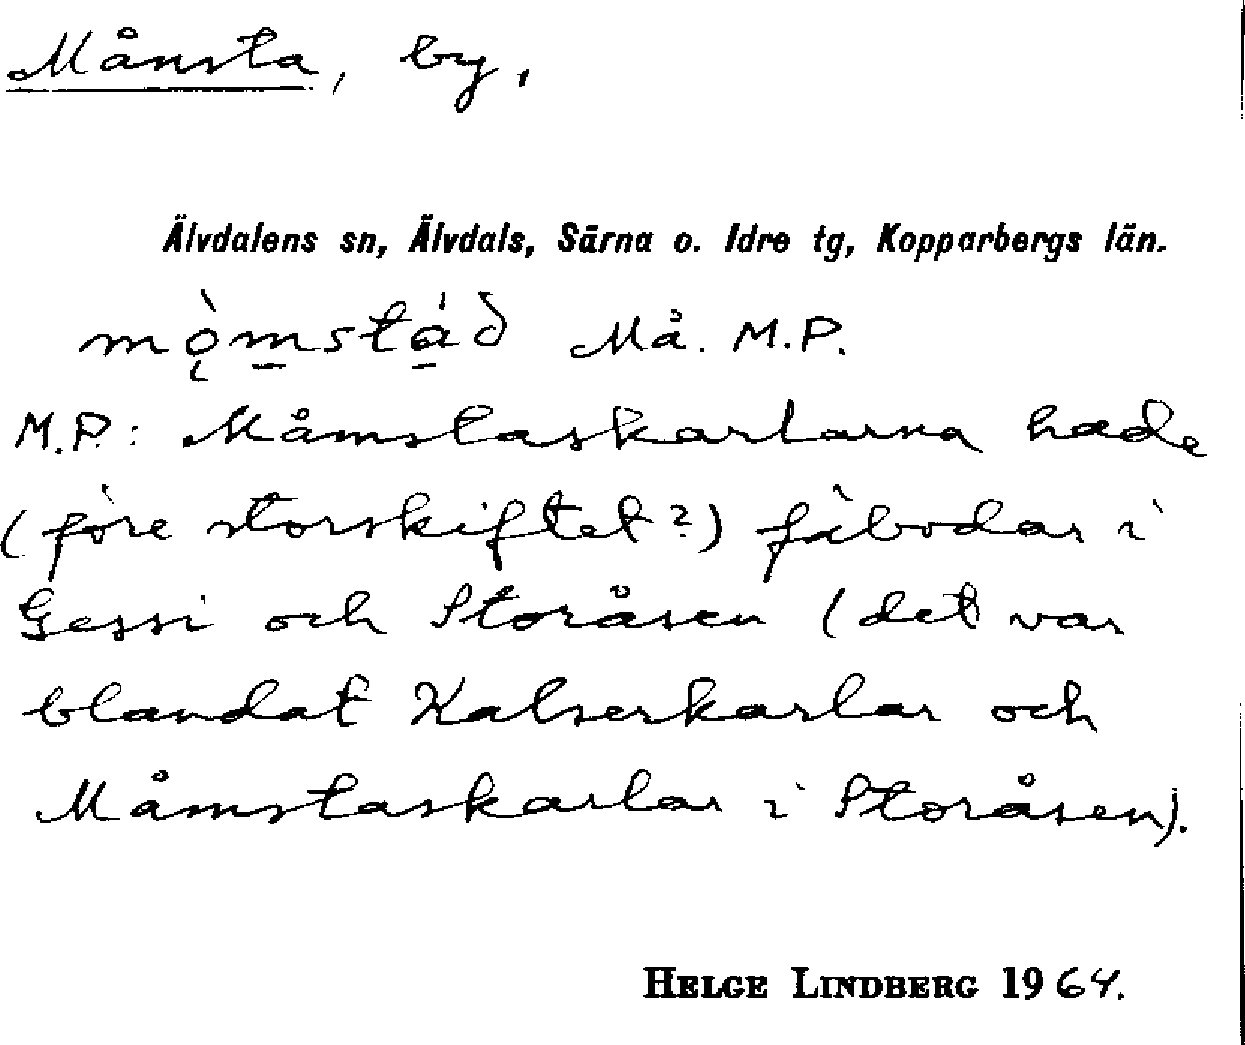 Månsta, by,
Älvdalens sn, Älvdals, Särna o. Idre tg, Kopparbergs län.
mǫ̀m̱stá̱ð Må. M.P.
M.P.: Måmstaskarlarna hade
(före storskiftet?) fäbodar i
Gessi och Storåsen (det var
blandat Kalserkarlar och
Måmstaskarlar i Storåsen).
HELGE LINDBERG 1964.